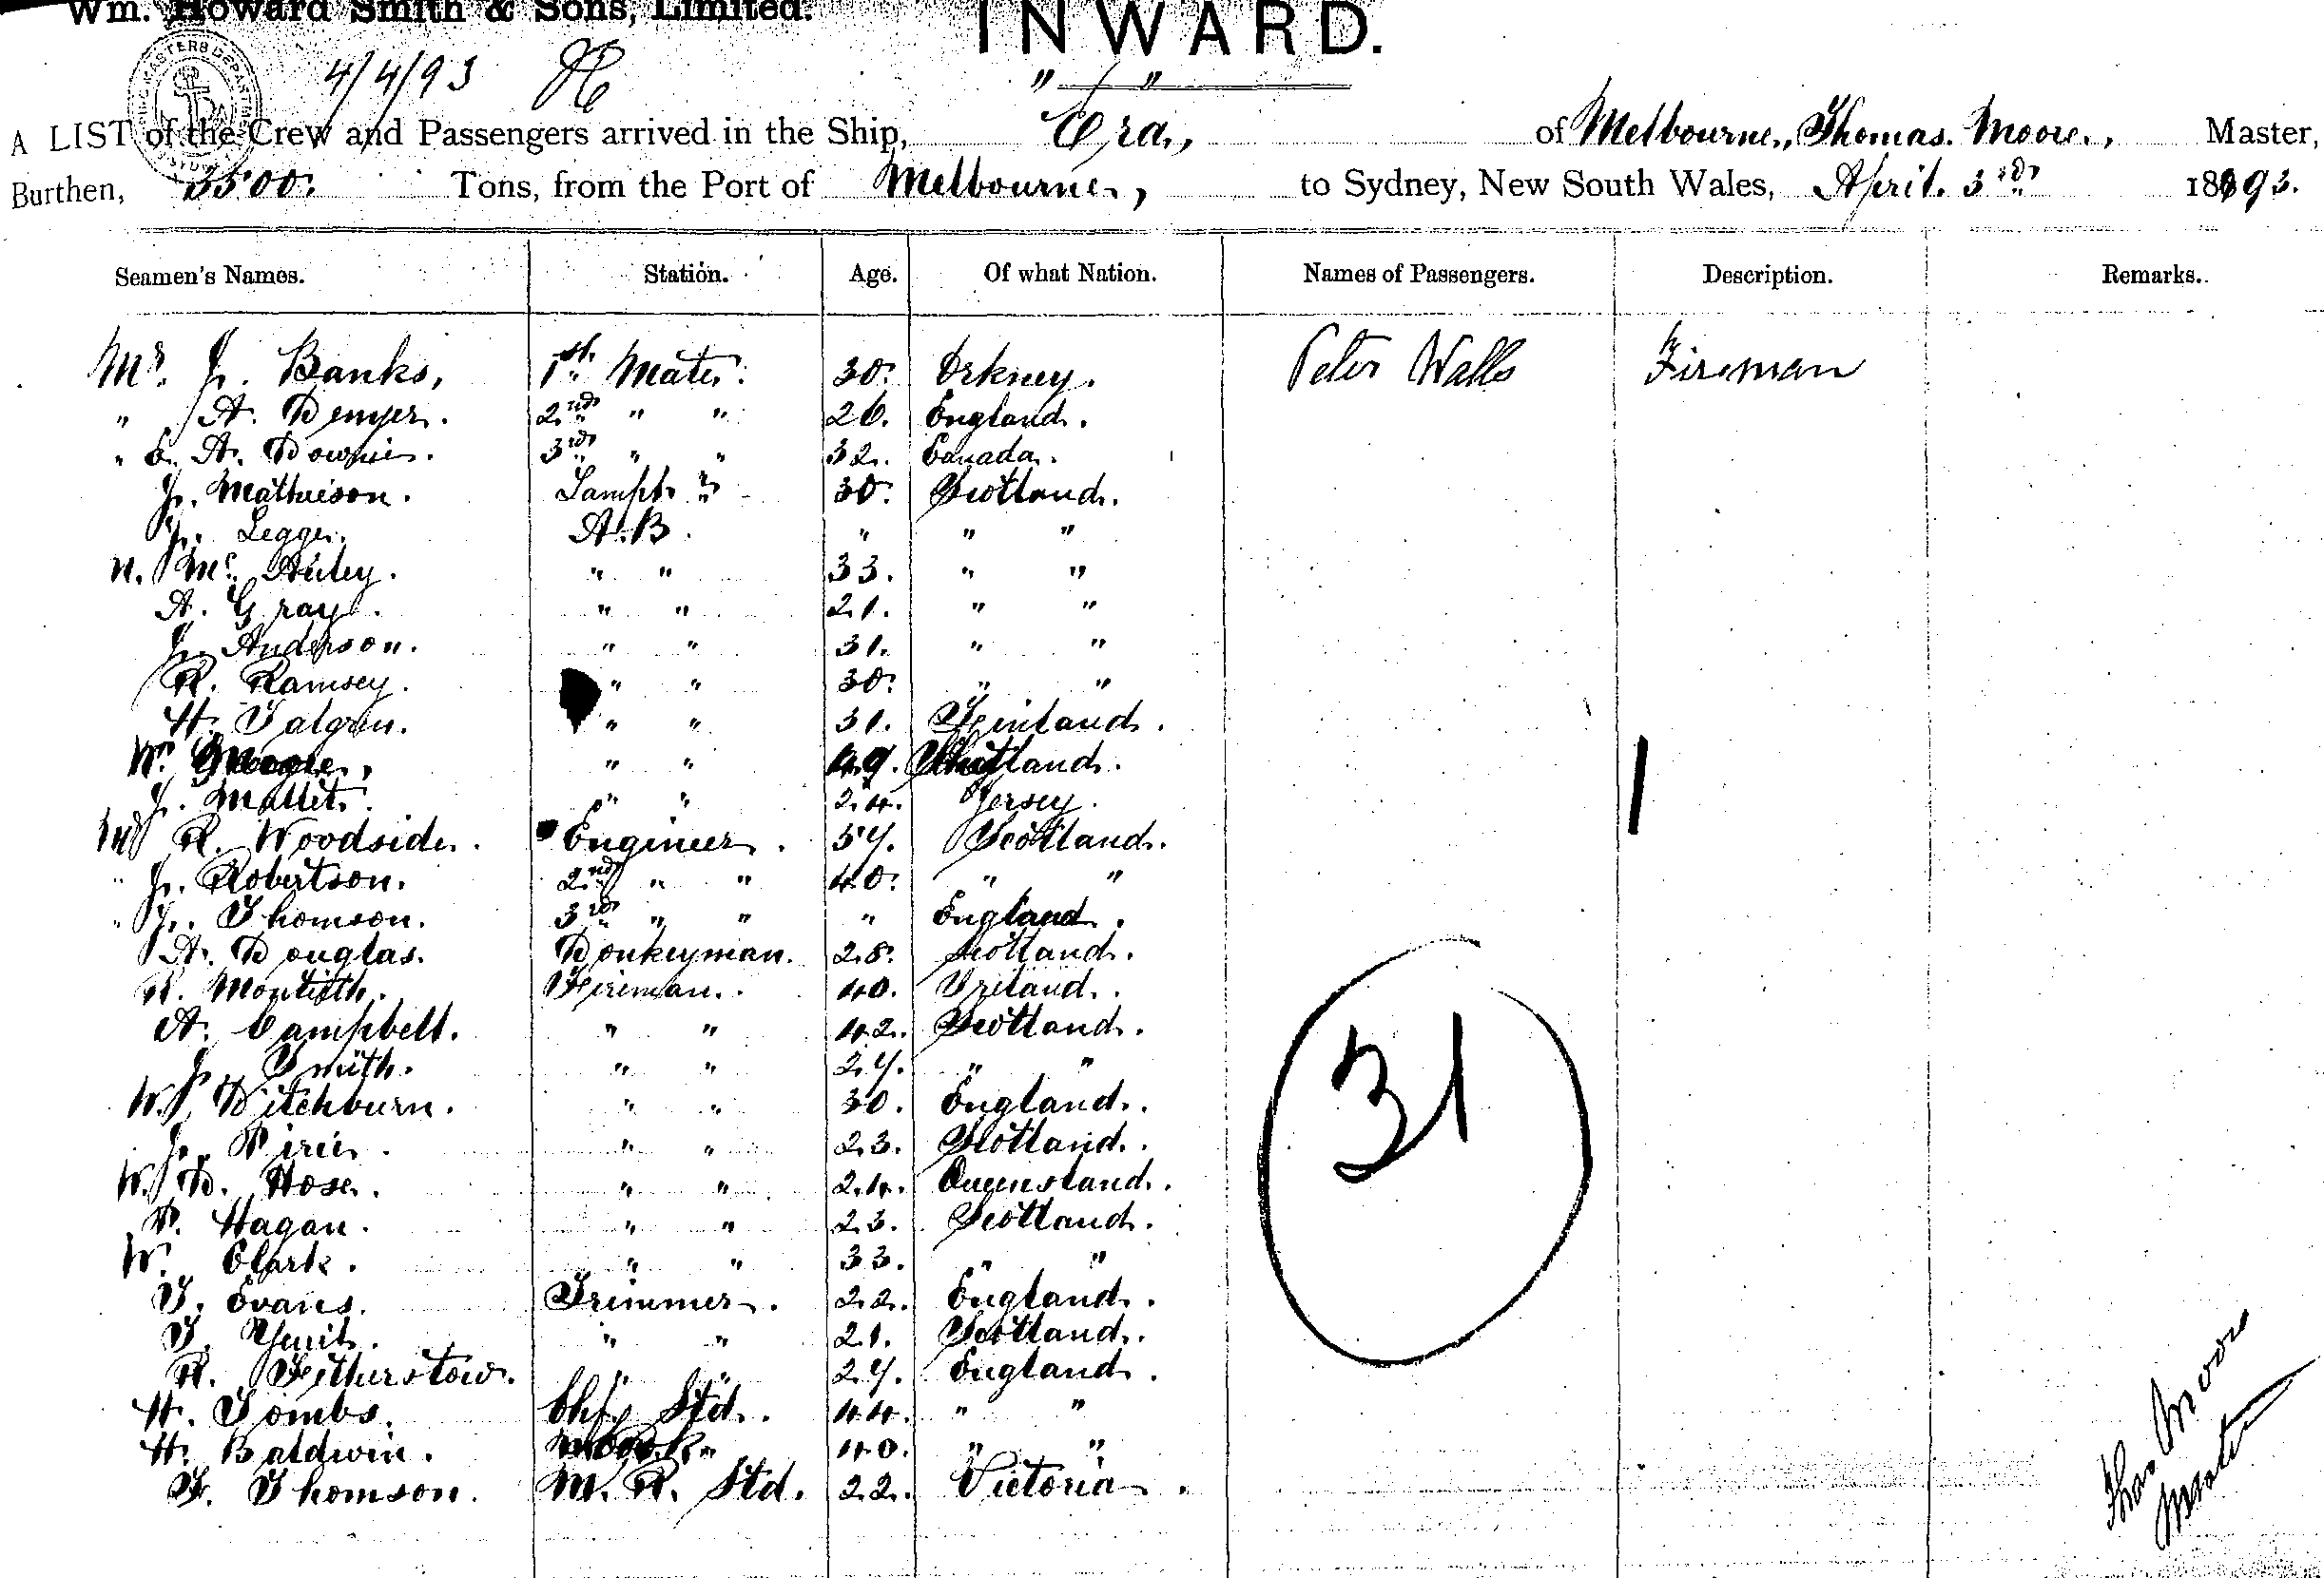 Wm. Howard Smith & Sons, Limited.
INWARD.
4/4/93
" "
A LIST of the Crew and Passengers arrived in the Ship, Era, of Melbourne, Thomas. Moore, Master,
Burthen, 3500. Tons, from the Port of Melbourne, to Sydney, New South Wales, April. 3rd 1893.
Seamen's Names. Station. Age. Of what Nation. Names of Passengers. Description. Remarks.
Mr. J. Banks, 1st Mate. 30. Orkney. Peter Walls Fireman
" A. Denyer. 2nd " " 26. England.
" E. A. Downie. 3rd " " 32. Canada.
J. Mathieson. Lampt 30. Scotland.
J. Legge. A.B. " " "
N. Mc. Auley. " " 33. " "
A. Gray. " " 21. " "
J. Anderson. " " 31. " "
R. Ramsey. " " 30. " "
H. Talgren. " " 31. Finland.
Wm " " 49.
J. Mallet. " " 24. Jersey.
Mr R. Woodside. Engineer. 57. Scotland.
" J. Robertson. 2nd " " 40. " "
" J. Thomson. 3rd " " " England.
A. Douglas. Donkeyman. 28. Scotland.
R. Montieth. Fireman. 40. Ireland.
A. Campbell. " " 42. Scotland.
J. Smith. " " 27. " "
W. Ditchburn. " " 30. England.
J. Pirie. " " 23. Scotland.
W. D. Hose. " " 24. Queensland.
P. Hagan. " " 23. Scotland.
W. Clark. " " 33. " "
T. Evans. Trimmer. 22. England.
T. " " 21. Scotland.
R. Fetherstow. " " 27. England.
H. Tombs. Chf Std. 44. " "
H. Baldwin. Cook 40. " "
F. Thomson. M. R. Std. 22. Victoria.
31
Thos Moore
Master